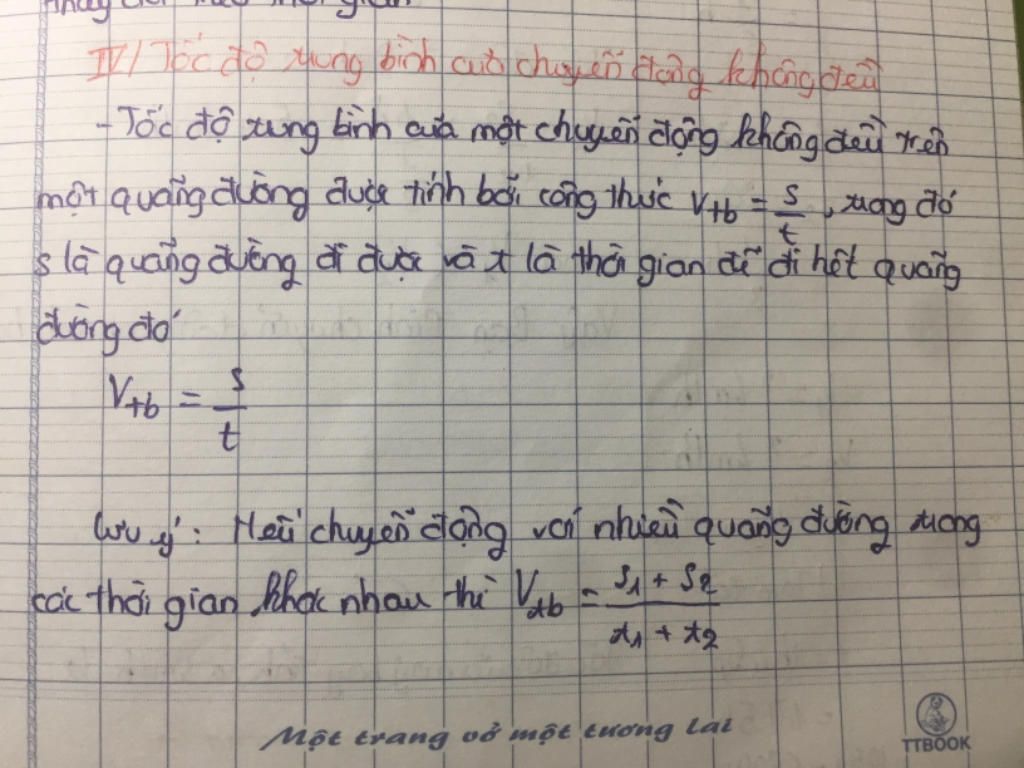 thay đổi theo thời gian
IV/ Tốc độ trung bình của chuyển động không đều
- Tốc độ trung bình của một chuyển động không đều trên
một quãng đường được tính bởi công thức V_tb = s/t, trong đó
s là quãng đường đi được và t là thời gian để đi hết quãng
đường đó
V_tb = s/t
Lưu ý: Nếu chuyển động với nhiều quãng đường trong
các thời gian khác nhau thì V_tb = (s₁ + s₂)/(t₁ + t₂)
Một trang vở một tương lai
TTBOOK